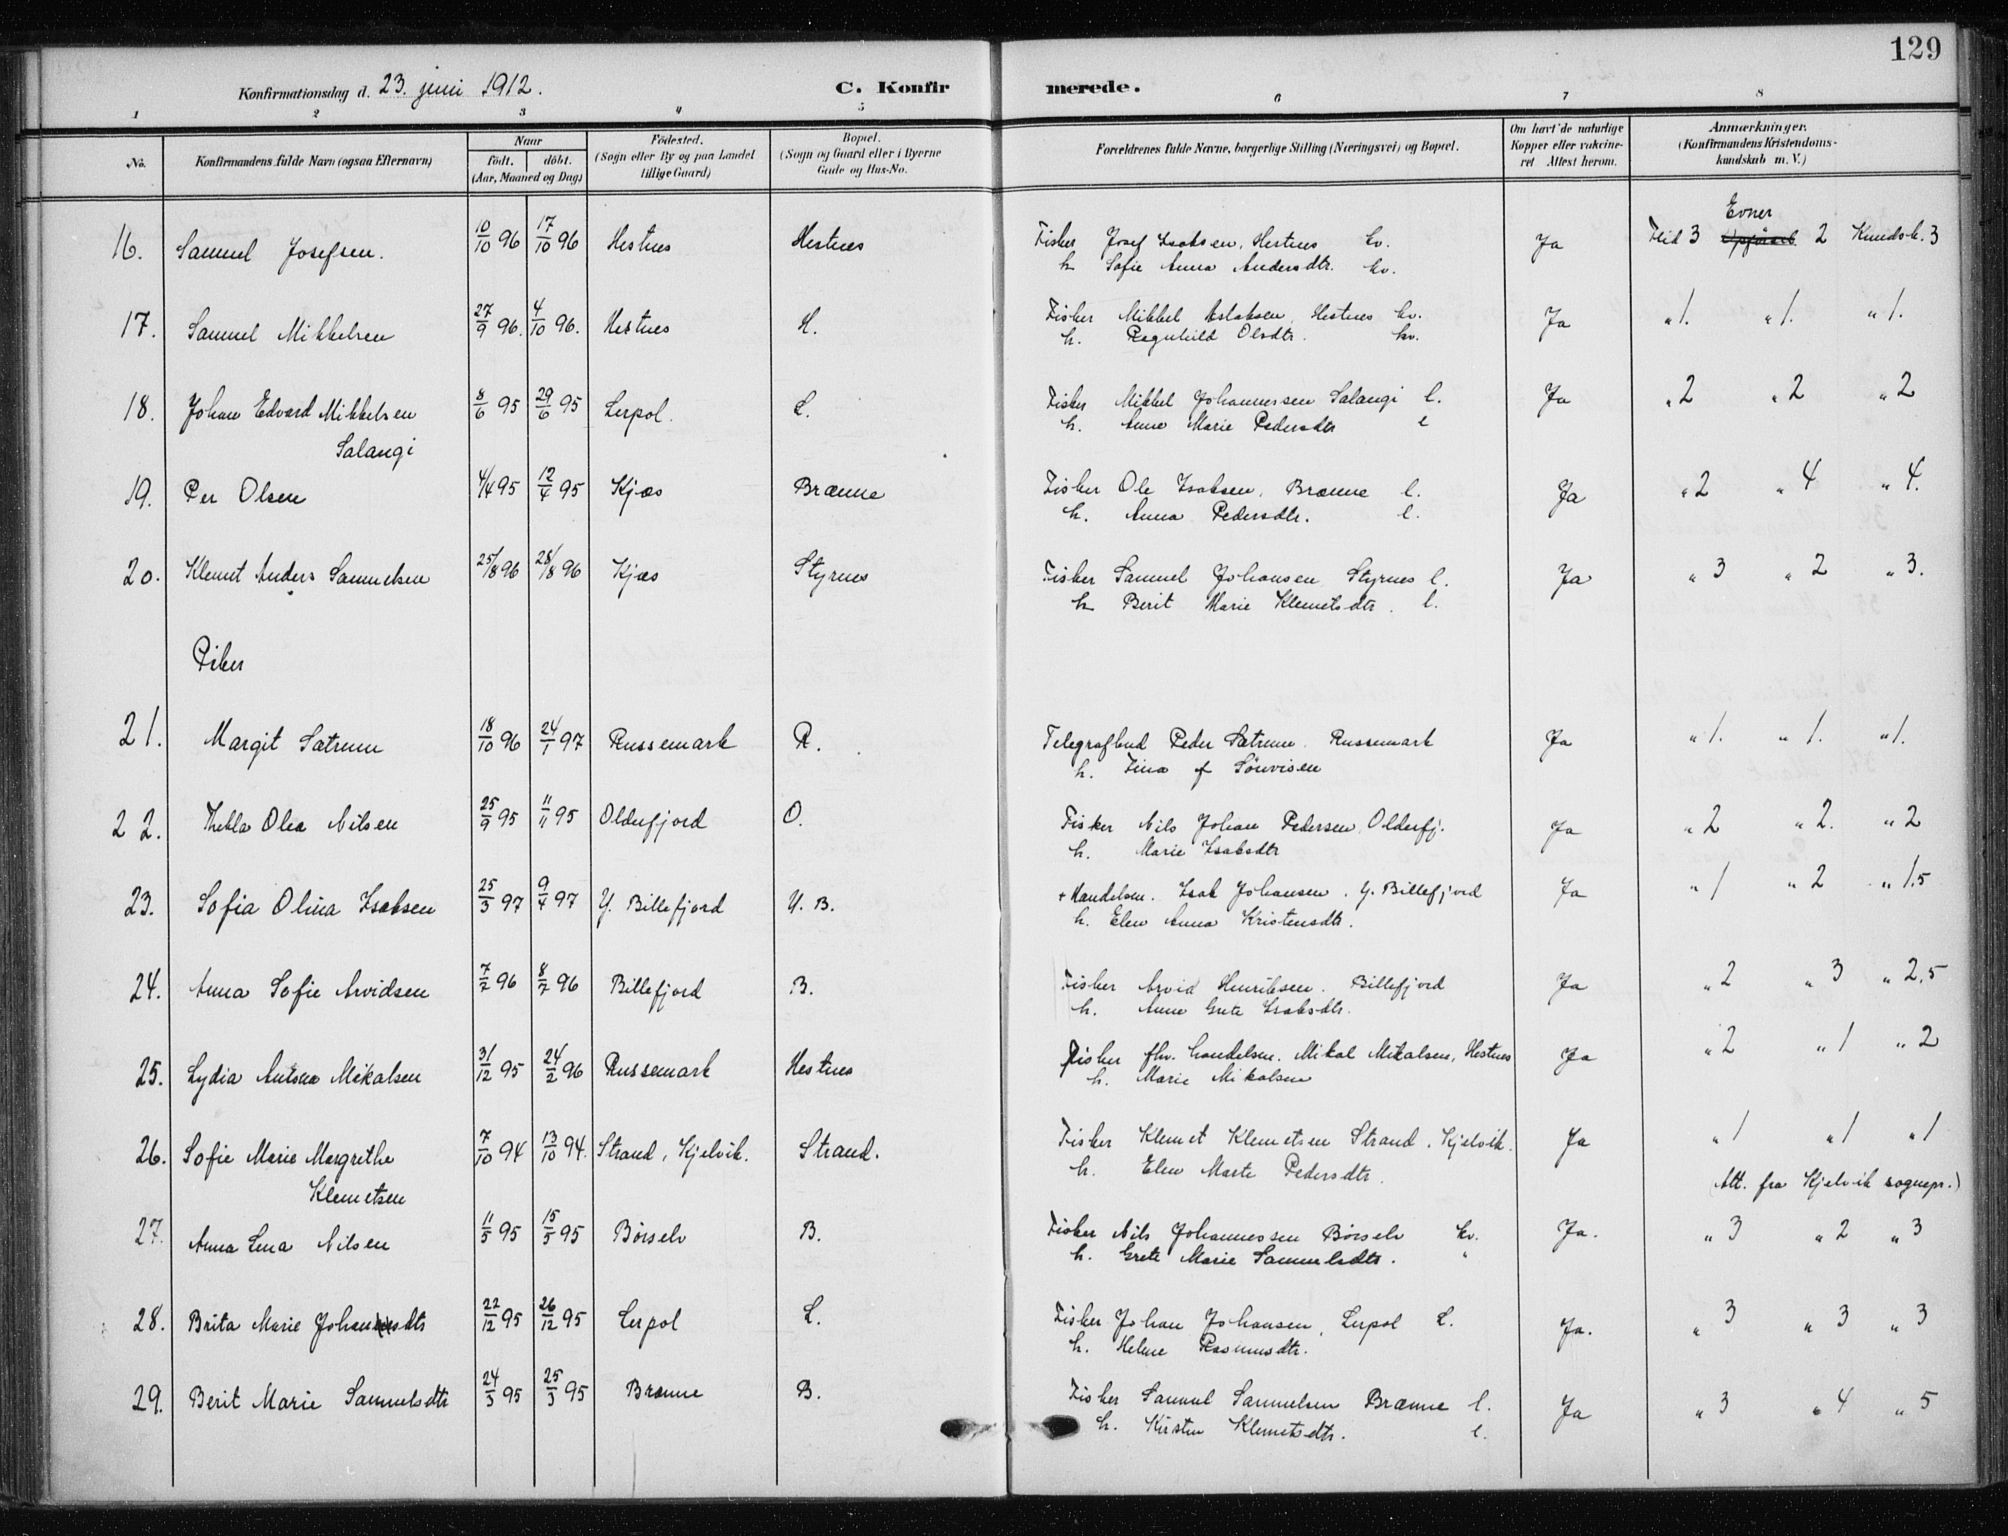 129
Konfirmationsdag d. 23. juni 1912. C. Konfirmerede.
1 2 3 4 5 6 7 8
No. Konfirmandens fulde Navn (ogsaa Efternavn) Naar født. døbt. (Aar, Maaned og Dag) Fødested. (Sogn eller By og paa Landet tillige Gaard) Bopæl. (Sogn og Gaard eller i Byerne Gade og Hus-No. Forældrenes fulde Navne, borgerlige Stilling (Næringsvei) og Bopæl. Om havt de naturlige Kopper eller vakcineret Attest herom. Anmærkninger. (Konfirmandens Kristendomskundskab m. V.)
Evner
16. Samuel Josefsen. 10/10 96 17/10 96 Hestnes Hestnes Fisker Josef Isaksen, Hestnes kv. Ja Flid 3 2 Kundsk. 3
h. Sofie Anna Andersdtr. kv.
17. Samuel Mikkelsen 27/9 96. 4/10 96. Hestnes H. Fisker Mikkel Aslaksen, Hestnes kv. Ja " 1. " 1. " 1.
h. Ragnhild Olsdtr. kv.
18. Johan Edvard Mikkelsen 8/6 95 29/6 95 Lerpol. L. Fisker Mikkel Johannessen Salangi l. Ja " 2 " 2 " 2
Salangi h. Anne Marie Pedersdtr l
19. Per Olsen 4/4 95 12/4 95 Kjæs Brænne Fisker Ole Isaksen, Brænne l. Ja " 2 " 4 " 4.
h. Anna Pedersdtr. l.
20. Klemet Anders Samuelsen 25/8 96 28/8 96 Kjæs Styrnes Fisker Samuel Johansen, Styrnes l. Ja " 3 " 2 " 3.
h Berit Marie Klemetsdtr. l.
Piker
21. Margit Sætrum 18/10 96 24/1 97 Russemark R. Telegrafbud Peder Sætrum. Russemark Ja " 1. " 1. " 1.
h. Lina f Sönvisen
22. Thekla Olea Nilsen 25/9 95 11/11 95 Olderfjord O. Fisker Nils Johan Pedersen, Olderfj. Ja " 2 " 2. " 2
h. Marie Isaksdtr
23. Sofia Olina Isaksen 25/3 97 9/4 97 Y. Billefjord Y. B. + Handelsm. Isak Johansen. Y. Billefjord Ja " 1 " 2 " 1.5
h. Elen Anna Kristensdtr.
24. Anna Sofie Arvidsen 7/2 96 8/2 96 Billefjord B. Fisker Arvid Henriksen. Billefjord Ja " 2 " 3 " 2,5
h. Anne Grete Isaksdtr.
25. Lydia Antona Mikalsen 31/12 95 24/2 96 Russemark Hestnes Fisker fhv. handelsm. Mikal Mikalsen, Hestnes Ja " 2 " 1 " 2
h. Marie Mikalsen
26. Sofie Marie Margrethe 7/10 94 13/10 94. Strand, Kjelvik. Strand. Fisker Klemet Klemetsen Strand, Kjelvik. Ja " 1 " 1 " 1
Klemetsen h. Elen Marte Pedersdtr. (Att. fra Kjelvik sognepr.)
27. Anna Lena Nilsen 11/5 95 15/5 95 Börselv B. Fisker Nils Johannessen Börselv kv. Ja. " 3 " 2 " 3
h. Grete Marie Samuelsdtr. "
28. Brita Marie Johansdtr 22/12 95 26/12 95 Lerpol L. Fisker Johan Johansen, Lerpol L. Ja. " 3 " 3 " 3
h. Helene Rasmusdtr.
29. Berit Marie Samuelsdtr 24/3 95 25/3 95 Brænne B. Fisker Samuel Samuelsen Brænne l. Ja " 3 " 4 " 5
h. Kirsten Klemetsdtr. l.